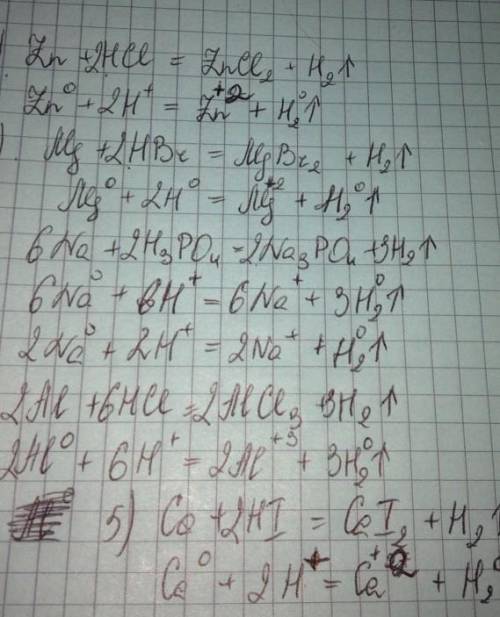 Zn + 2HCl = ZnCl₂ + H₂↑
Zn⁰ + 2H⁺ = Zn⁺² + H₂⁰↑
Mg + 2HBr = MgBr₂ + H₂↑
Mg⁰ + 2H⁰ = Mg⁺² + H₂⁰↑
6Na + 2H₃PO₄ = 2Na₃PO₄ + 3H₂↑
6Na⁰ + 6H⁺ = 6Na⁺ + 3H₂⁰↑
2Na⁰ + 2H⁺ = 2Na⁺ + H₂⁰↑
2Al + 6HCl = 2AlCl₃ + 3H₂↑
2Al⁰ + 6H⁺ = 2Al⁺³ + 3H₂⁰↑
5) Ca + 2HI = CaI₂ + H₂↑
Ca⁰ + 2H⁺ = Ca⁺² + H₂⁰